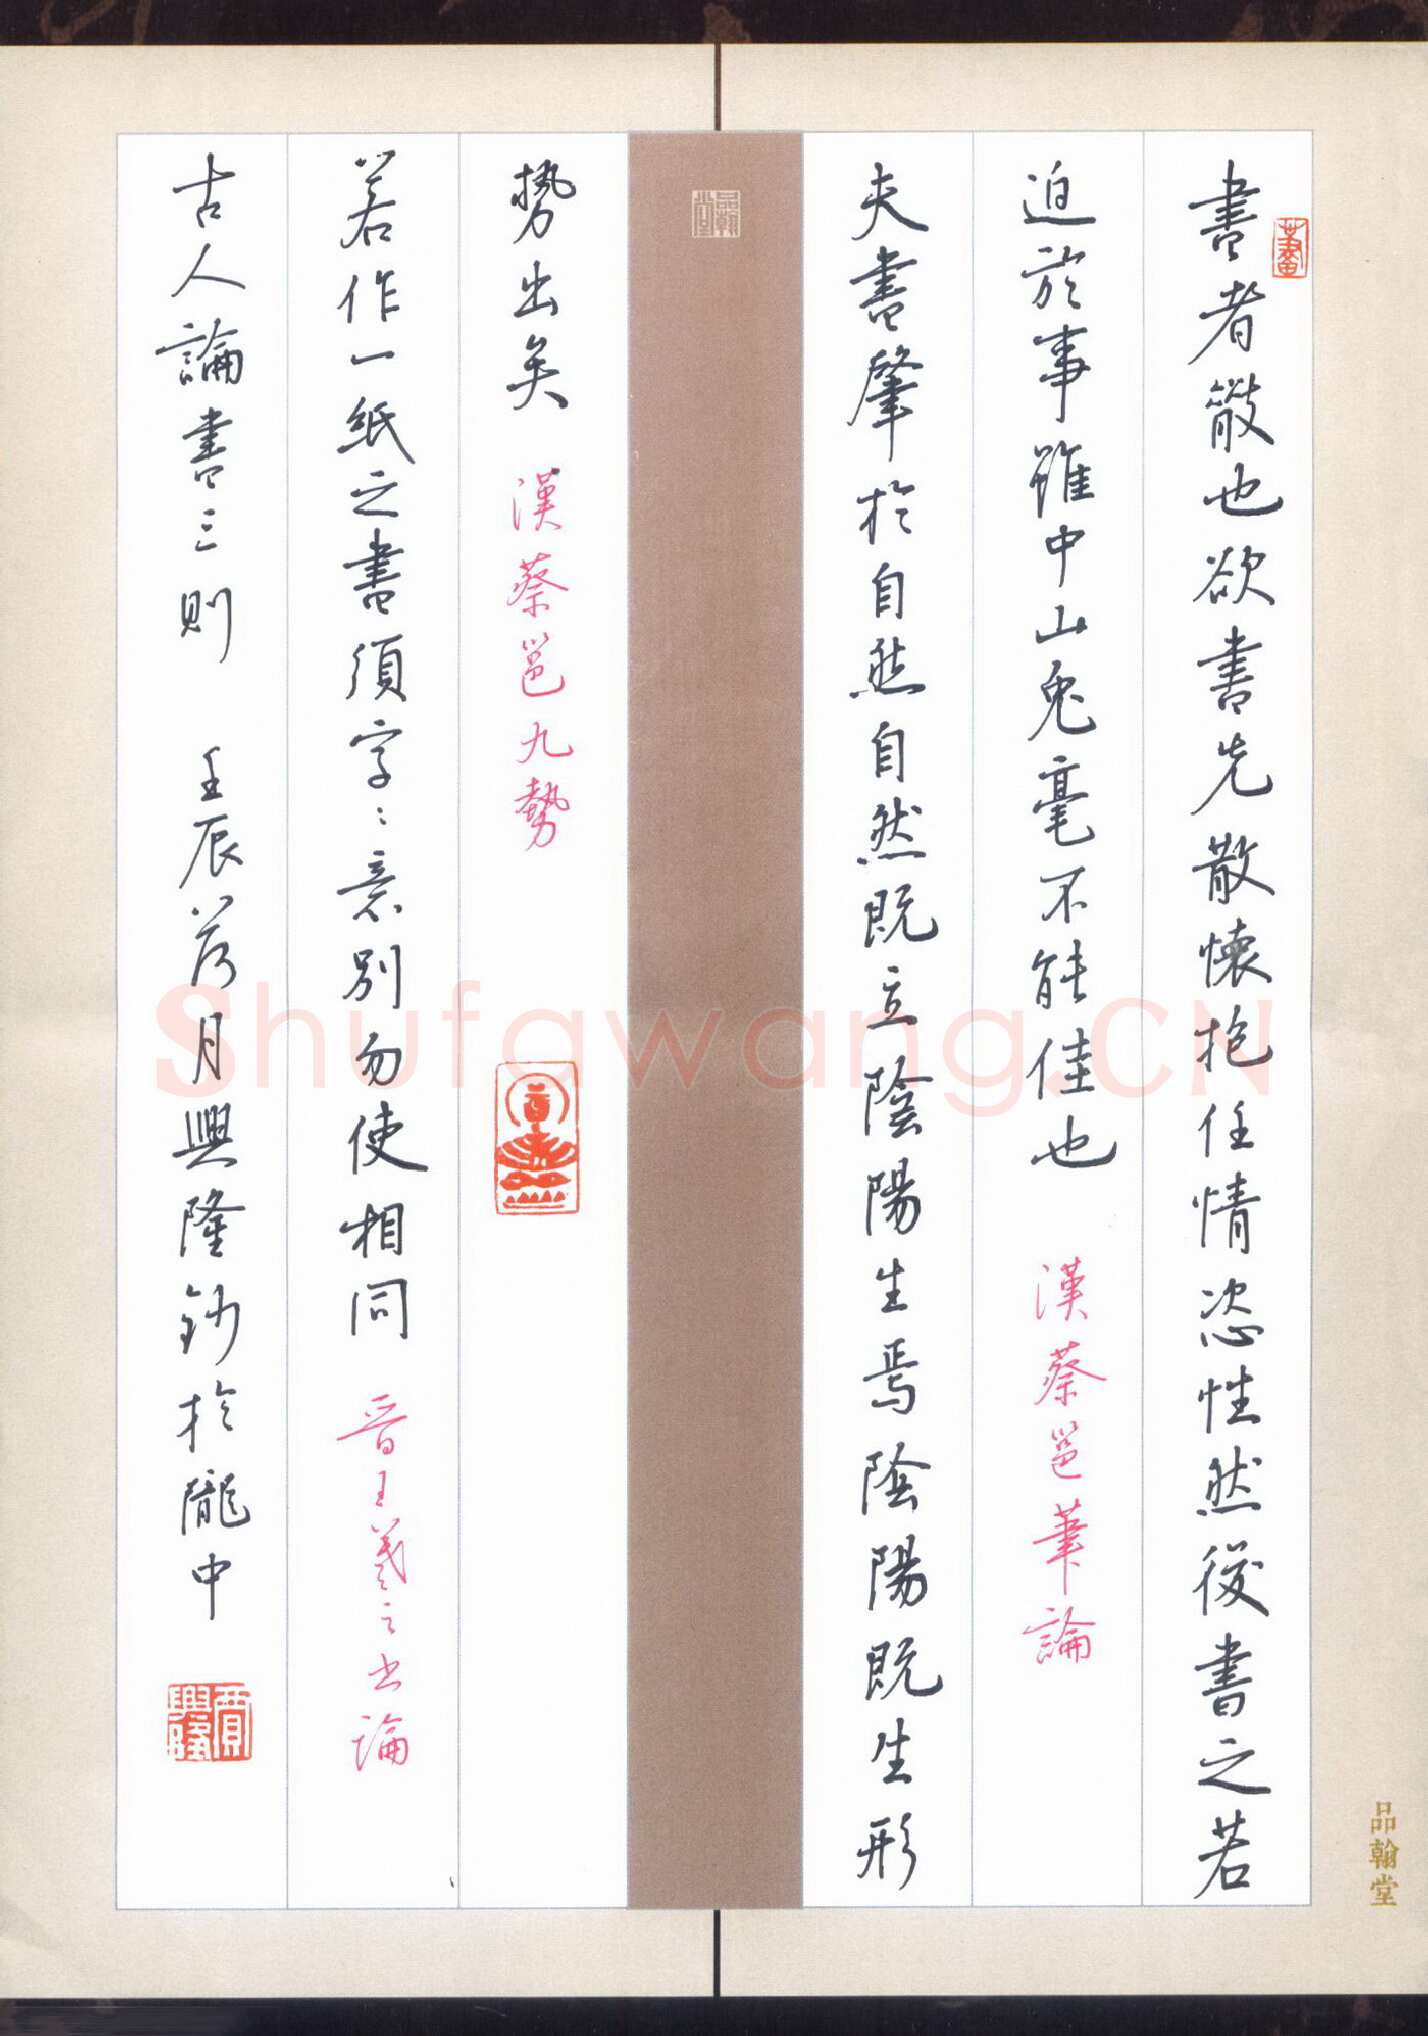 書者散也欲書先散懷抱任情恣性然後書之若
迫於事雖中山兔毫不能佳也 漢蔡邕筆論
夫書肇於自然自然既立陰陽生焉陰陽既生形
勢出矣 漢蔡邕九勢
若作一紙之書須字:意別勿使相同 晉王羲之書論
古人論書三則 壬辰荷月興隆鈔於隴中
賈興隆
品翰堂
品翰堂
Shufawang.CN